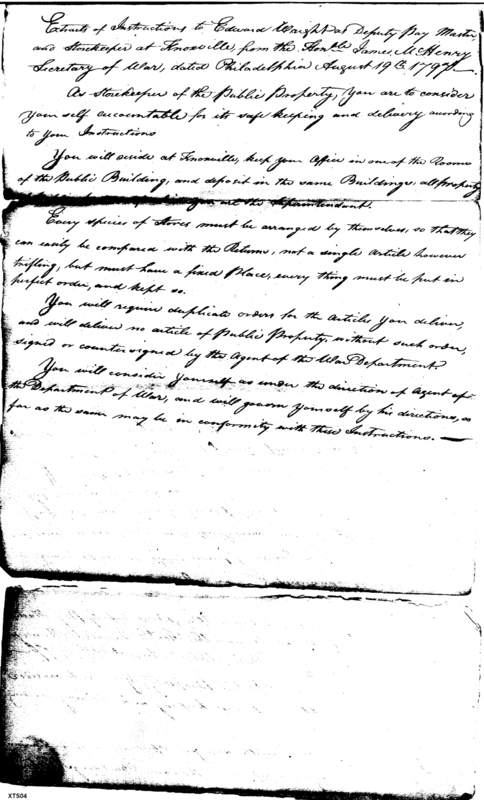 Extracts of Instructions to Edward Waight as Deputy Pay Master
and Storekeeper at Knoxville, from the Honble. James McHenry
Secretary of War, dated Philadelphia August 19th. 1797.
As storekeeper of the Public Property, You are to consider
Your self accountable for its safe keeping and delivery according
to your Instructions
You will reside at Knoxville, keep your Office in one of the Rooms
of the Public Building, and deposit in the same Buildings, all property
You are the Superintendant.
Every species of Stores must be arranged by themselves, so that they
can easily be compared with the Returns, not a single Article however
trifling, but must have a fixed Place, every thing must be put in
perfect order, and kept so.
You will require duplicate orders for the Articles You deliver,
and will deliver no article of Public Property, without such order,
signed or countersigned by the Agent of the War Department.
You will consider Yourself as under the direction of Agent of
the Department of War, and will govern Yourself by his directions, so
far as the same may be in conformity with these Instructions.
XTS04